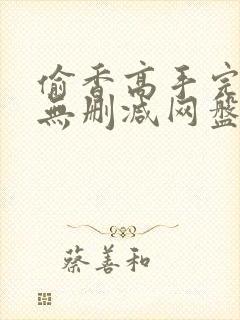 偷香高手完
無删减网盘
蔡善和